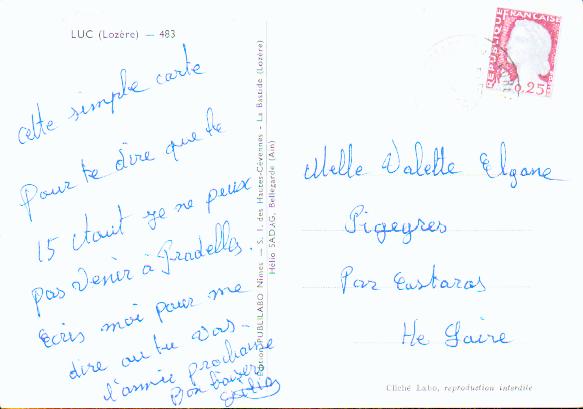 LUC (Lozère) — 483
Cette simple carte
pour te dire que le
15 Aout je ne peux
pas venir à Pradelles.
Ecris moi pour me
dire ou tu vas
l'année prochaine
Bon baisers
Edition PUBLILABO Nîmes — S. I. des Hautes-Cévennes - La Bastide (Lozère)
Hélio SADAG, Bellegarde (Ain)
REPUBLIQUE FRANÇAISE
0,25
Melle Valette Elyane
Pigeyres
Par Costaros
Hte Loire
Cliché Labo, reproduction interdite